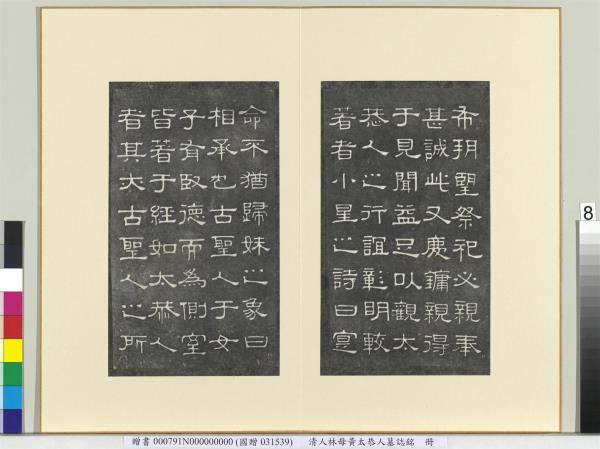 希朔望祭祀必親奉
甚誠此又慶鏞親得
于見聞益足以觀太
恭人之行誼彰明較
著者小星之詩曰寔
命不猶歸妹之象曰
相承也古聖人于女
子有臤德而為側室
皆著于經如太恭人
者其亦古聖人之所
8
贈書 000791N000000000 (國贈 031539) 清人林母黃太恭人墓誌銘 冊